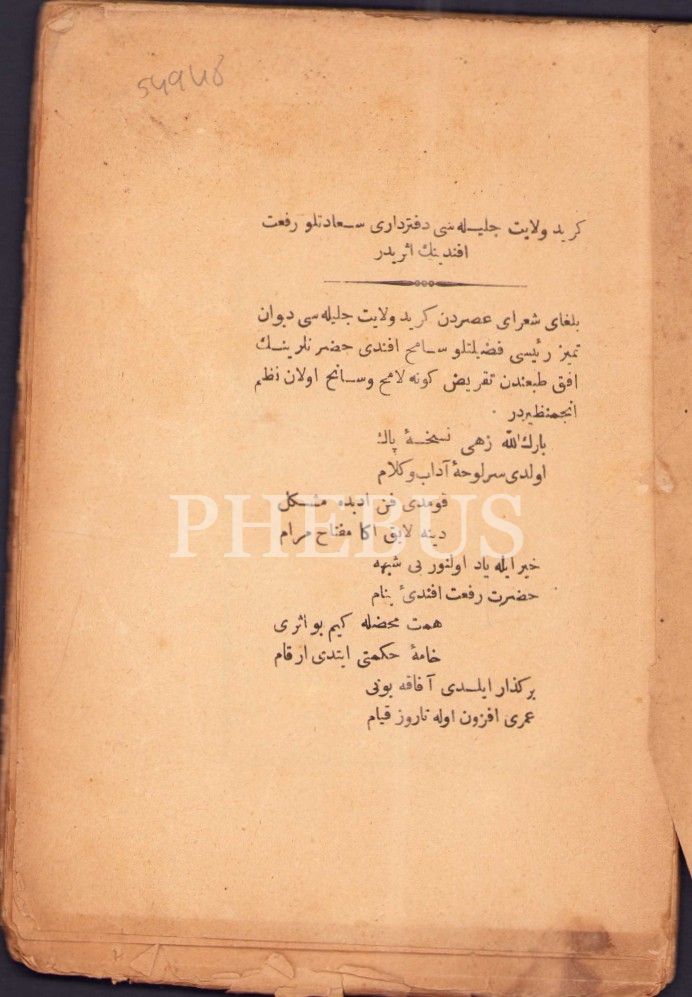 54948
كريد ولايت جليله سى دفتردارى سعادتلو رفعت
افندينك اثريدر
بلغاى شعراى عصردن كريد ولايت جليله سى ديوان
تميز رئيسى فضيلتلو سامح افندى حضرتلرينك
افق طبعندن تقريض كونه لامح وسانح اولان نظم
انجمنظيردر .
بارك الله زهى نسخۀ پاك
اولدى سرلوحۀ آداب وكلام
قومدى فن ادبده مشكل
دينه لايق اكا مفتاح مرام
خير ايله ياد اولنور بى شبهه
حضرت رفعت افندئ بنام
همت محضله كيم بو اثرى
خامۀ حكمتى ايتدى ارقام
بركذار ايلدى آفاقه بونى
عمرى افزون اوله تاروز قيام
PHEBUS